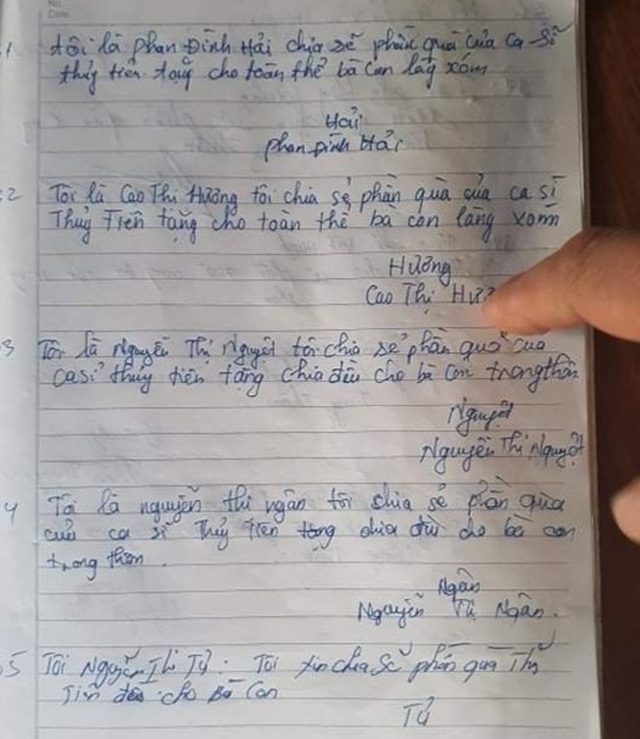 No.
Date
1 tôi là phan Đình Hải chia sẻ phần quà của ca sĩ
thủy tiên tặng cho toàn thể bà con láng xóm
Hải
phan Đình Hải
2 Tôi là Cao Thị Hương tôi chia sẻ phần quà của ca sĩ
Thuỷ Tiên tặng cho toàn thể bà con làng xóm
Hương
Cao Thị Hươ
3 Tôi là Nguyễn Thị Nguyệt tôi chia sẻ phần quà của
ca sĩ thủy tiên tặng chia đều cho bà con trong thôn
Nguyệt
Nguyễn Thị Nguyệt
4 Tôi là nguyễn thi ngân tôi chia sẻ phần qùa
của ca sĩ Thuỷ tiên tặng chia đều cho bà con
trong thôn.
Ngân
Nguyễn Thị Ngân.
5 Tôi Nguyễn Thi Tứ: Tôi xin chia Sẻ phần quà Thủy
Tiên đều cho Bà Con
Tứ